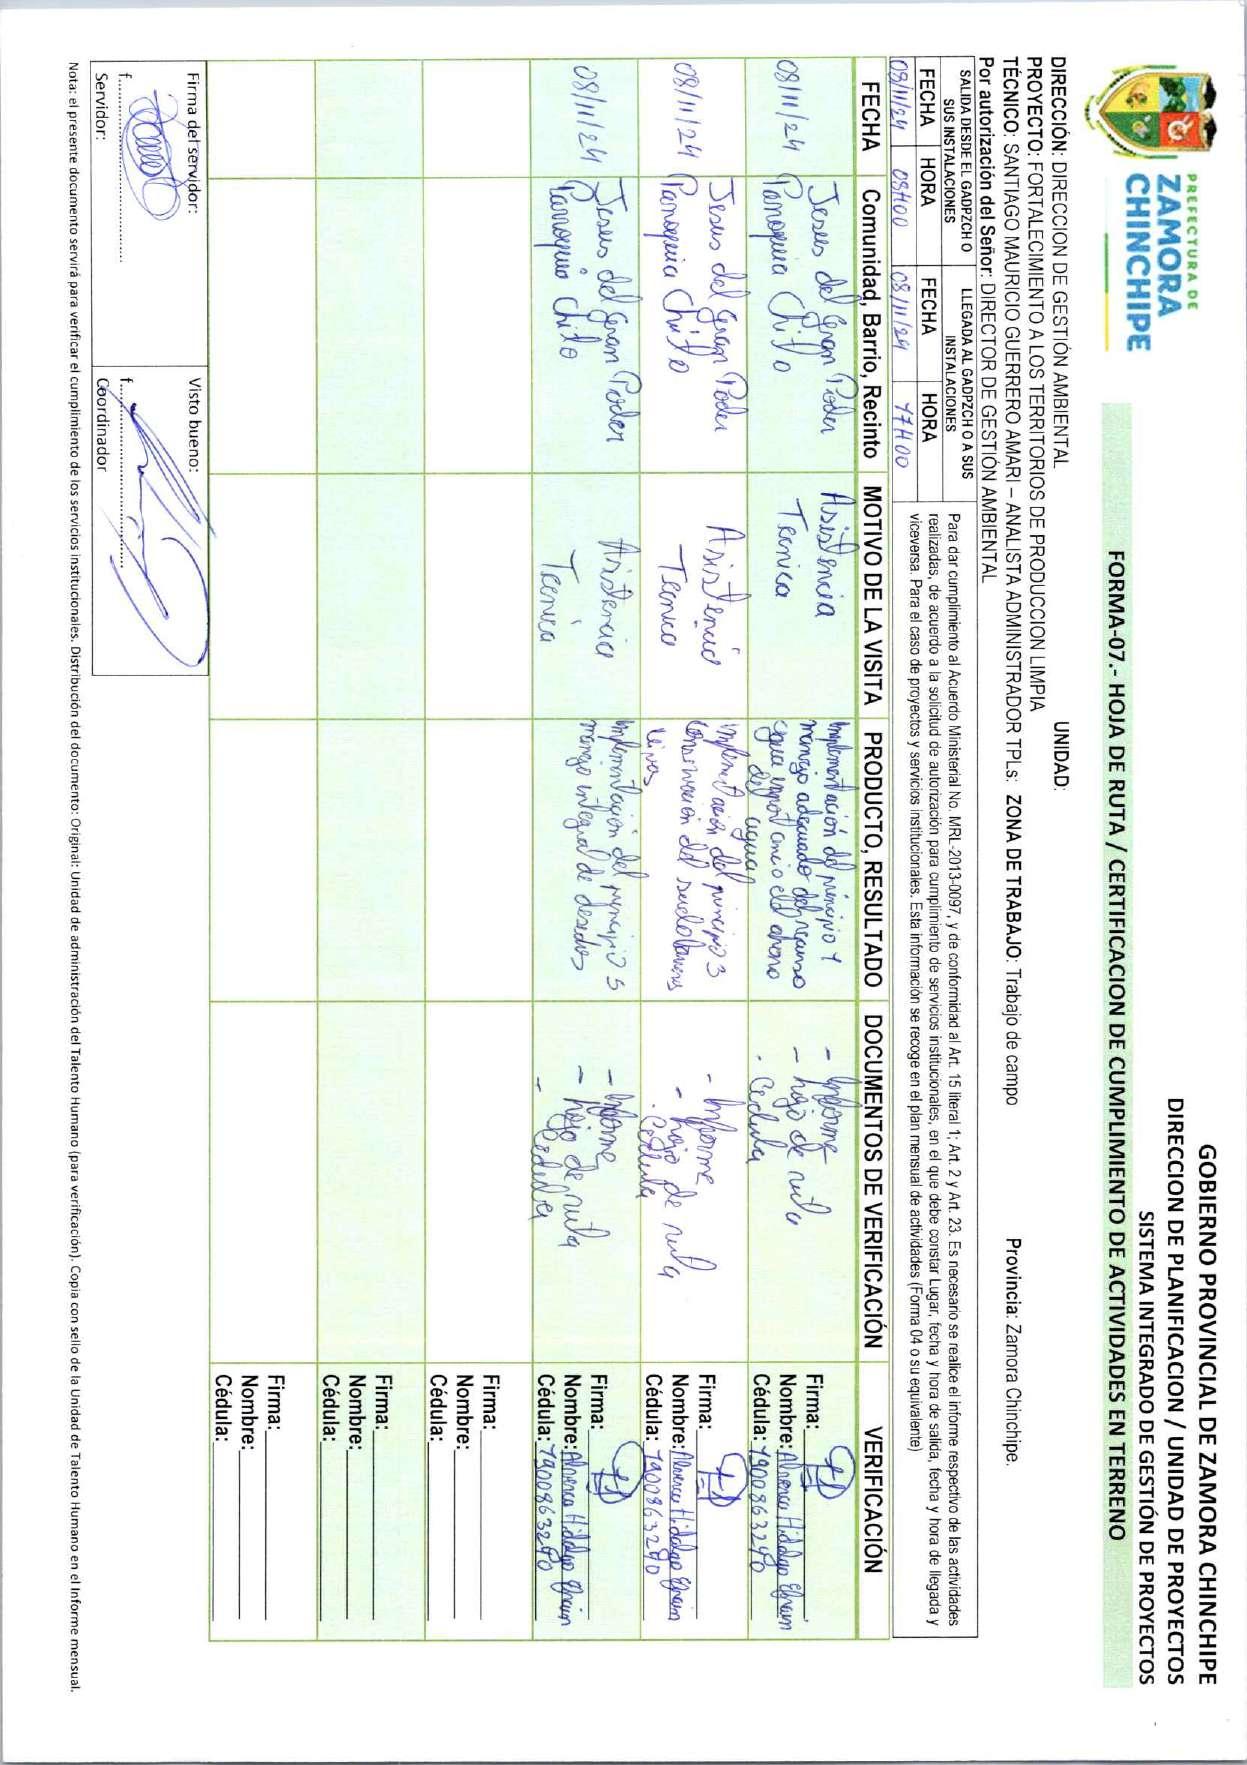 PREFECTURA DE
ZAMORA
CHINCHIPE
GOBIERNO PROVINCIAL DE ZAMORA CHINCHIPE
DIRECCION DE PLANIFICACION / UNIDAD DE PROYECTOS
SISTEMA INTEGRADO DE GESTIÓN DE PROYECTOS
FORMA-07.- HOJA DE RUTA / CERTIFICACION DE CUMPLIMIENTO DE ACTIVIDADES EN TERRENO
DIRECCIÓN: DIRECCION DE GESTIÓN AMBIENTAL UNIDAD:
PROYECTO: FORTALECIMIENTO A LOS TERRITORIOS DE PRODUCCION LIMPIA
TÉCNICO: SANTIAGO MAURICIO GUERRERO AMARI – ANALISTA ADMINISTRADOR TPLs: ZONA DE TRABAJO: Trabajo de campo Provincia: Zamora Chinchipe.
Por autorización del Señor: DIRECTOR DE GESTIÓN AMBIENTAL
SALIDA DESDE EL GADPZCH O SUS INSTALACIONES
LLEGADA AL GADPZCH O A SUS INSTALACIONES
FECHA HORA FECHA HORA
08/11/24 08H00 08/11/24 17H00
Para dar cumplimiento al Acuerdo Ministerial No. MRL-2013-0097, y de conformidad al Art. 15 literal 1; Art. 2 y Art. 23. Es necesario se realice el informe respectivo de las actividades
realizadas, de acuerdo a la solicitud de autorización para cumplimiento de servicios institucionales, en el que debe constar Lugar, fecha y hora de salida, fecha y hora de llegada y
viceversa. Para el caso de proyectos y servicios institucionales. Esta información se recoge en el plan mensual de actividades (Forma 04 o su equivalente)
FECHA Comunidad, Barrio, Recinto MOTIVO DE LA VISITA PRODUCTO, RESULTADO DOCUMENTOS DE VERIFICACIÓN VERIFICACIÓN
08/11/24
Jesus del Gran Poder
Parroquia Chito
Asistencia
Tecnica
Implementación del principio 4
manejo adecuado del recurso
agua importancia del ahorro
del agua
- Informe
- hoja de ruta
- Cedula
Firma:
Nombre: Hidalgo Efrain
Cédula: 1900863290
08/11/24
Jesus del Gran Poder
Parroquia Chito
Asistencia
Tecnica
Implementación del principio 3
conservación del suelo
- Informe
- hoja de ruta
- Cedula
Firma:
Nombre: Hidalgo Efrain
Cédula: 1900863290
08/11/24
Jesus del Gran Poder
Parroquia Chito
Asistencia
Tecnica
Implementación del principio 5
manejo integral de desechos
- Informe
- hoja de ruta
- Cedula
Firma:
Nombre: Hidalgo Efrain
Cédula: 1900863290
Firma:
Nombre:
Cédula:
Firma:
Nombre:
Cédula:
Firma:
Nombre:
Cédula:
Firma del servidor:
f.
Servidor:
Visto bueno:
f.
Coordinador
Nota: el presente documento servirá para verificar el cumplimiento de los servicios institucionales. Distribución del documento: Original: Unidad de administración del Talento Humano (para verificación). Copia con sello de la Unidad de Talento Humano en el Informe mensual.